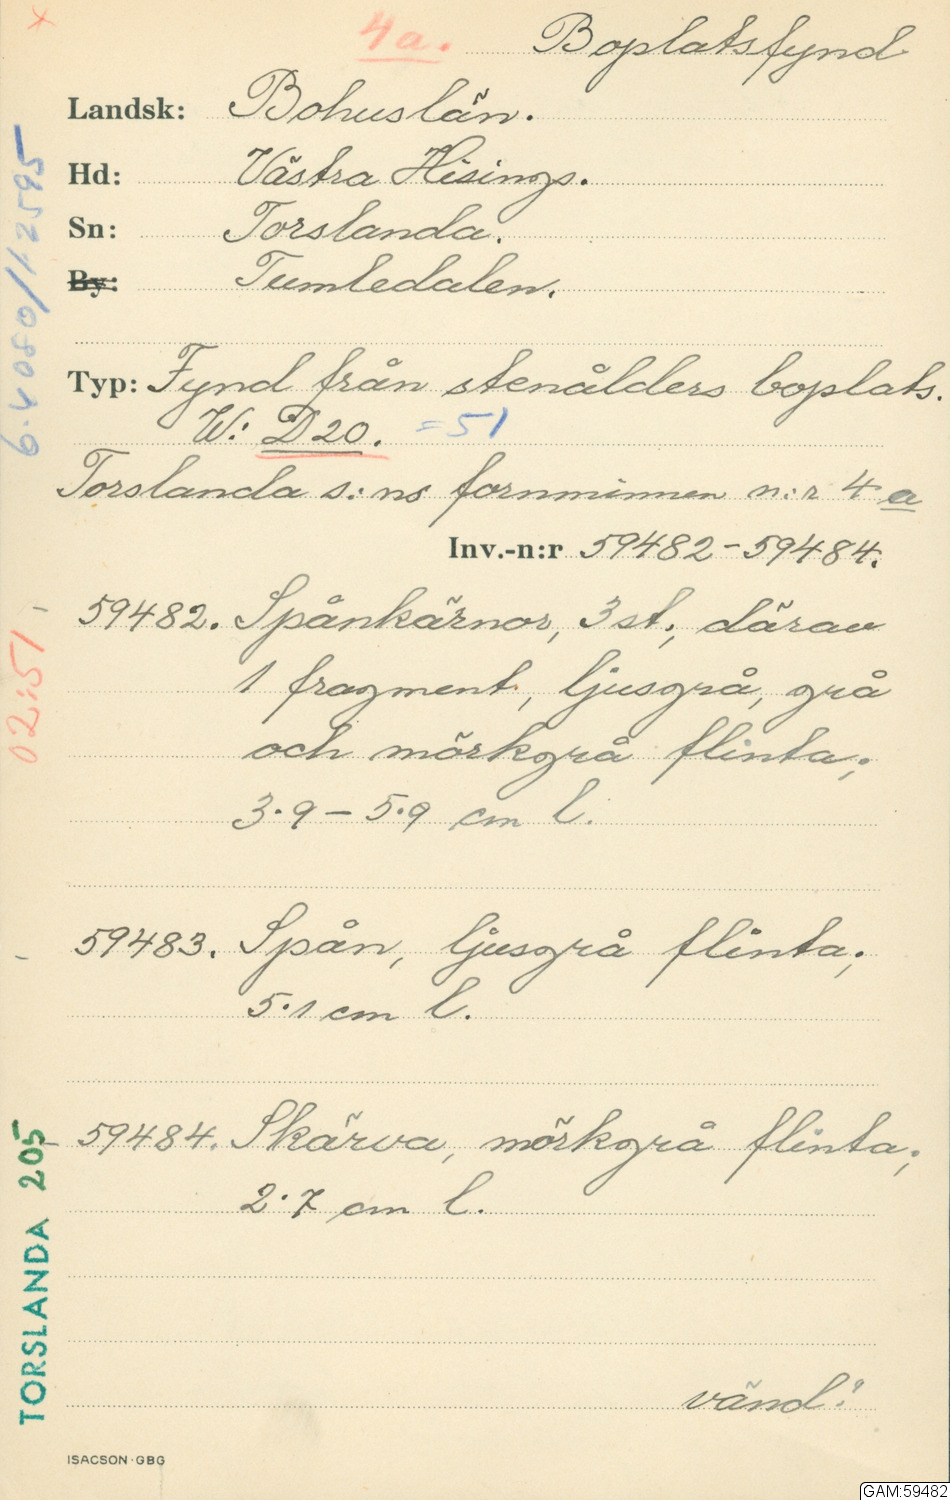 x
4a.
Boplatsfynd
Landsk: Bohuslän.
Hd: Västra Hisings.
Sn: Torslanda.
By: Tumledalen.
Typ: Fynd från stenålders boplats.
W: D20. =51
Torslanda s:ns fornminnen n:r 4a
Inv.-n:r 59482-59484.
59482. Spånkärnor, 3 st., därav
1 fragment, ljusgrå, grå
och mörkgrå flinta;
3.9 - 5.9 cm l.
59483. Spån, ljusgrå flinta;
5.1 cm l.
59484. Skärva, mörkgrå flinta;
2.7 cm l.
vänd!
ISACSON·GBG
02:51
TORSLANDA 205
GAM:59482